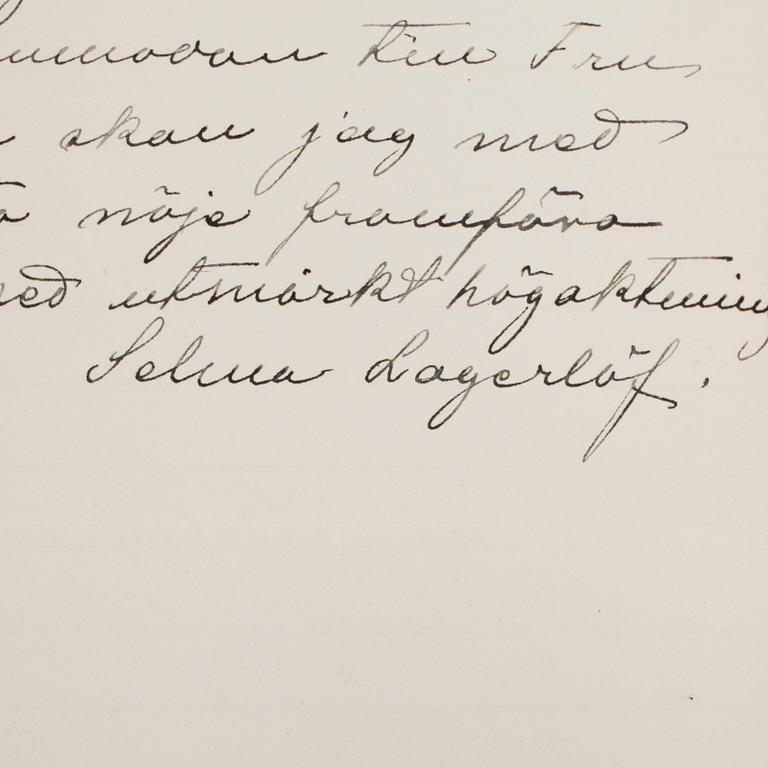 till Fru
skall jag med
nöje framföra
med utmärkt högaktning
Selma Lagerlöf.